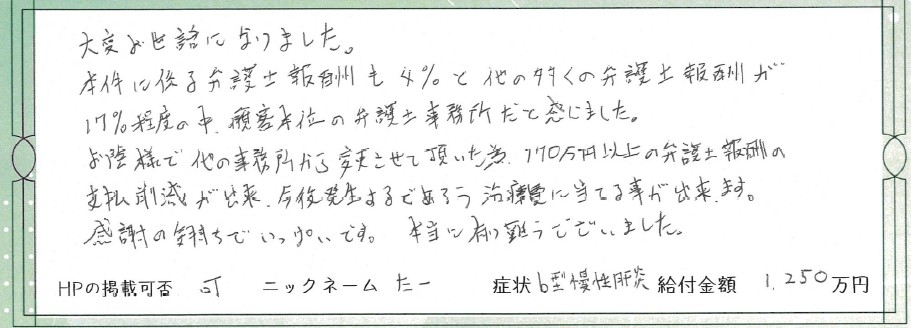 大変お世話になりました。
本件に係る弁護士報酬も4%と他の多くの弁護士報酬が
17%程度の中、顧客本位の弁護士事務所だと感じました。
お陰様で他の事務所から変更させて頂いた為、170万円以上の弁護士報酬の
支払削減が出来、今後発生するであろう治療費に当てる事が出来ます。
感謝の気持ちでいっぱいです。 本当に有り難うございました。
HPの掲載可否 可 ニックネーム たー 症状 b型慢性肝炎 給付金額 1,250万円